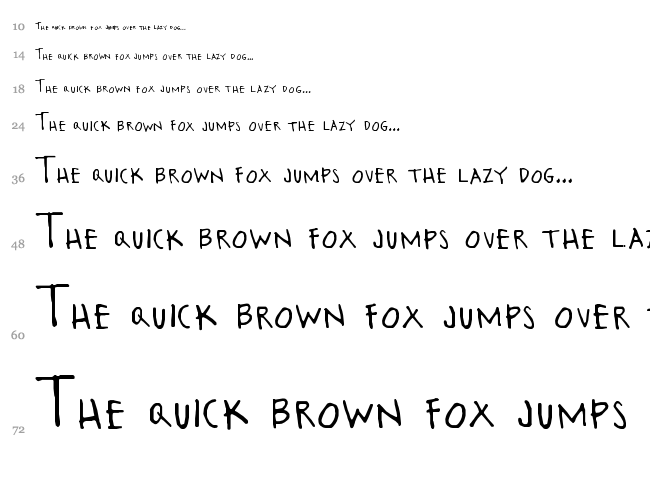 10 The quick brown fox jumps over the lazy dog...
14 The quick brown fox jumps over the lazy dog...
18 The quick brown fox jumps over the lazy dog...
24 The quick brown fox jumps over the lazy dog...
36 The quick brown fox jumps over the lazy dog...
48 The quick brown fox jumps over the laz
60 The quick brown fox jumps over
72 The quick brown fox jumps